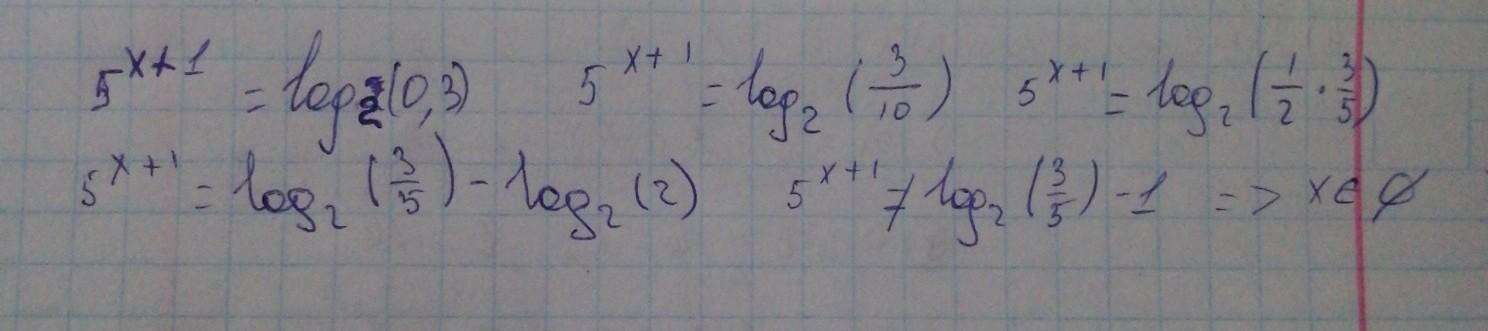 5^{x+1} = log_2(0,3) 5^{x+1} = log_2(3/10) 5^{x+1} = log_2(1/2 · 3/5)
5^{x+1} = log_2(3/5) - log_2(2) 5^{x+1} ≠ log_2(3/5) - 1 => x ∈ ∅